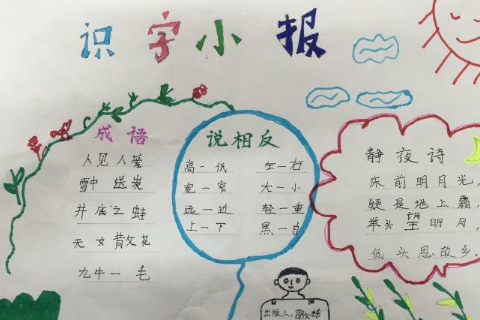 识字小报
成语
人见人爱
雪中送炭
井底之蛙
天女散花
九牛一毛
说相反
高一低 左一右
宽一窄 大一小
远一近 轻一重
上一下 黑一白
静夜诗
床前明月光,
疑是地上霜,
举头望明月,
低头思故乡。
出版人: